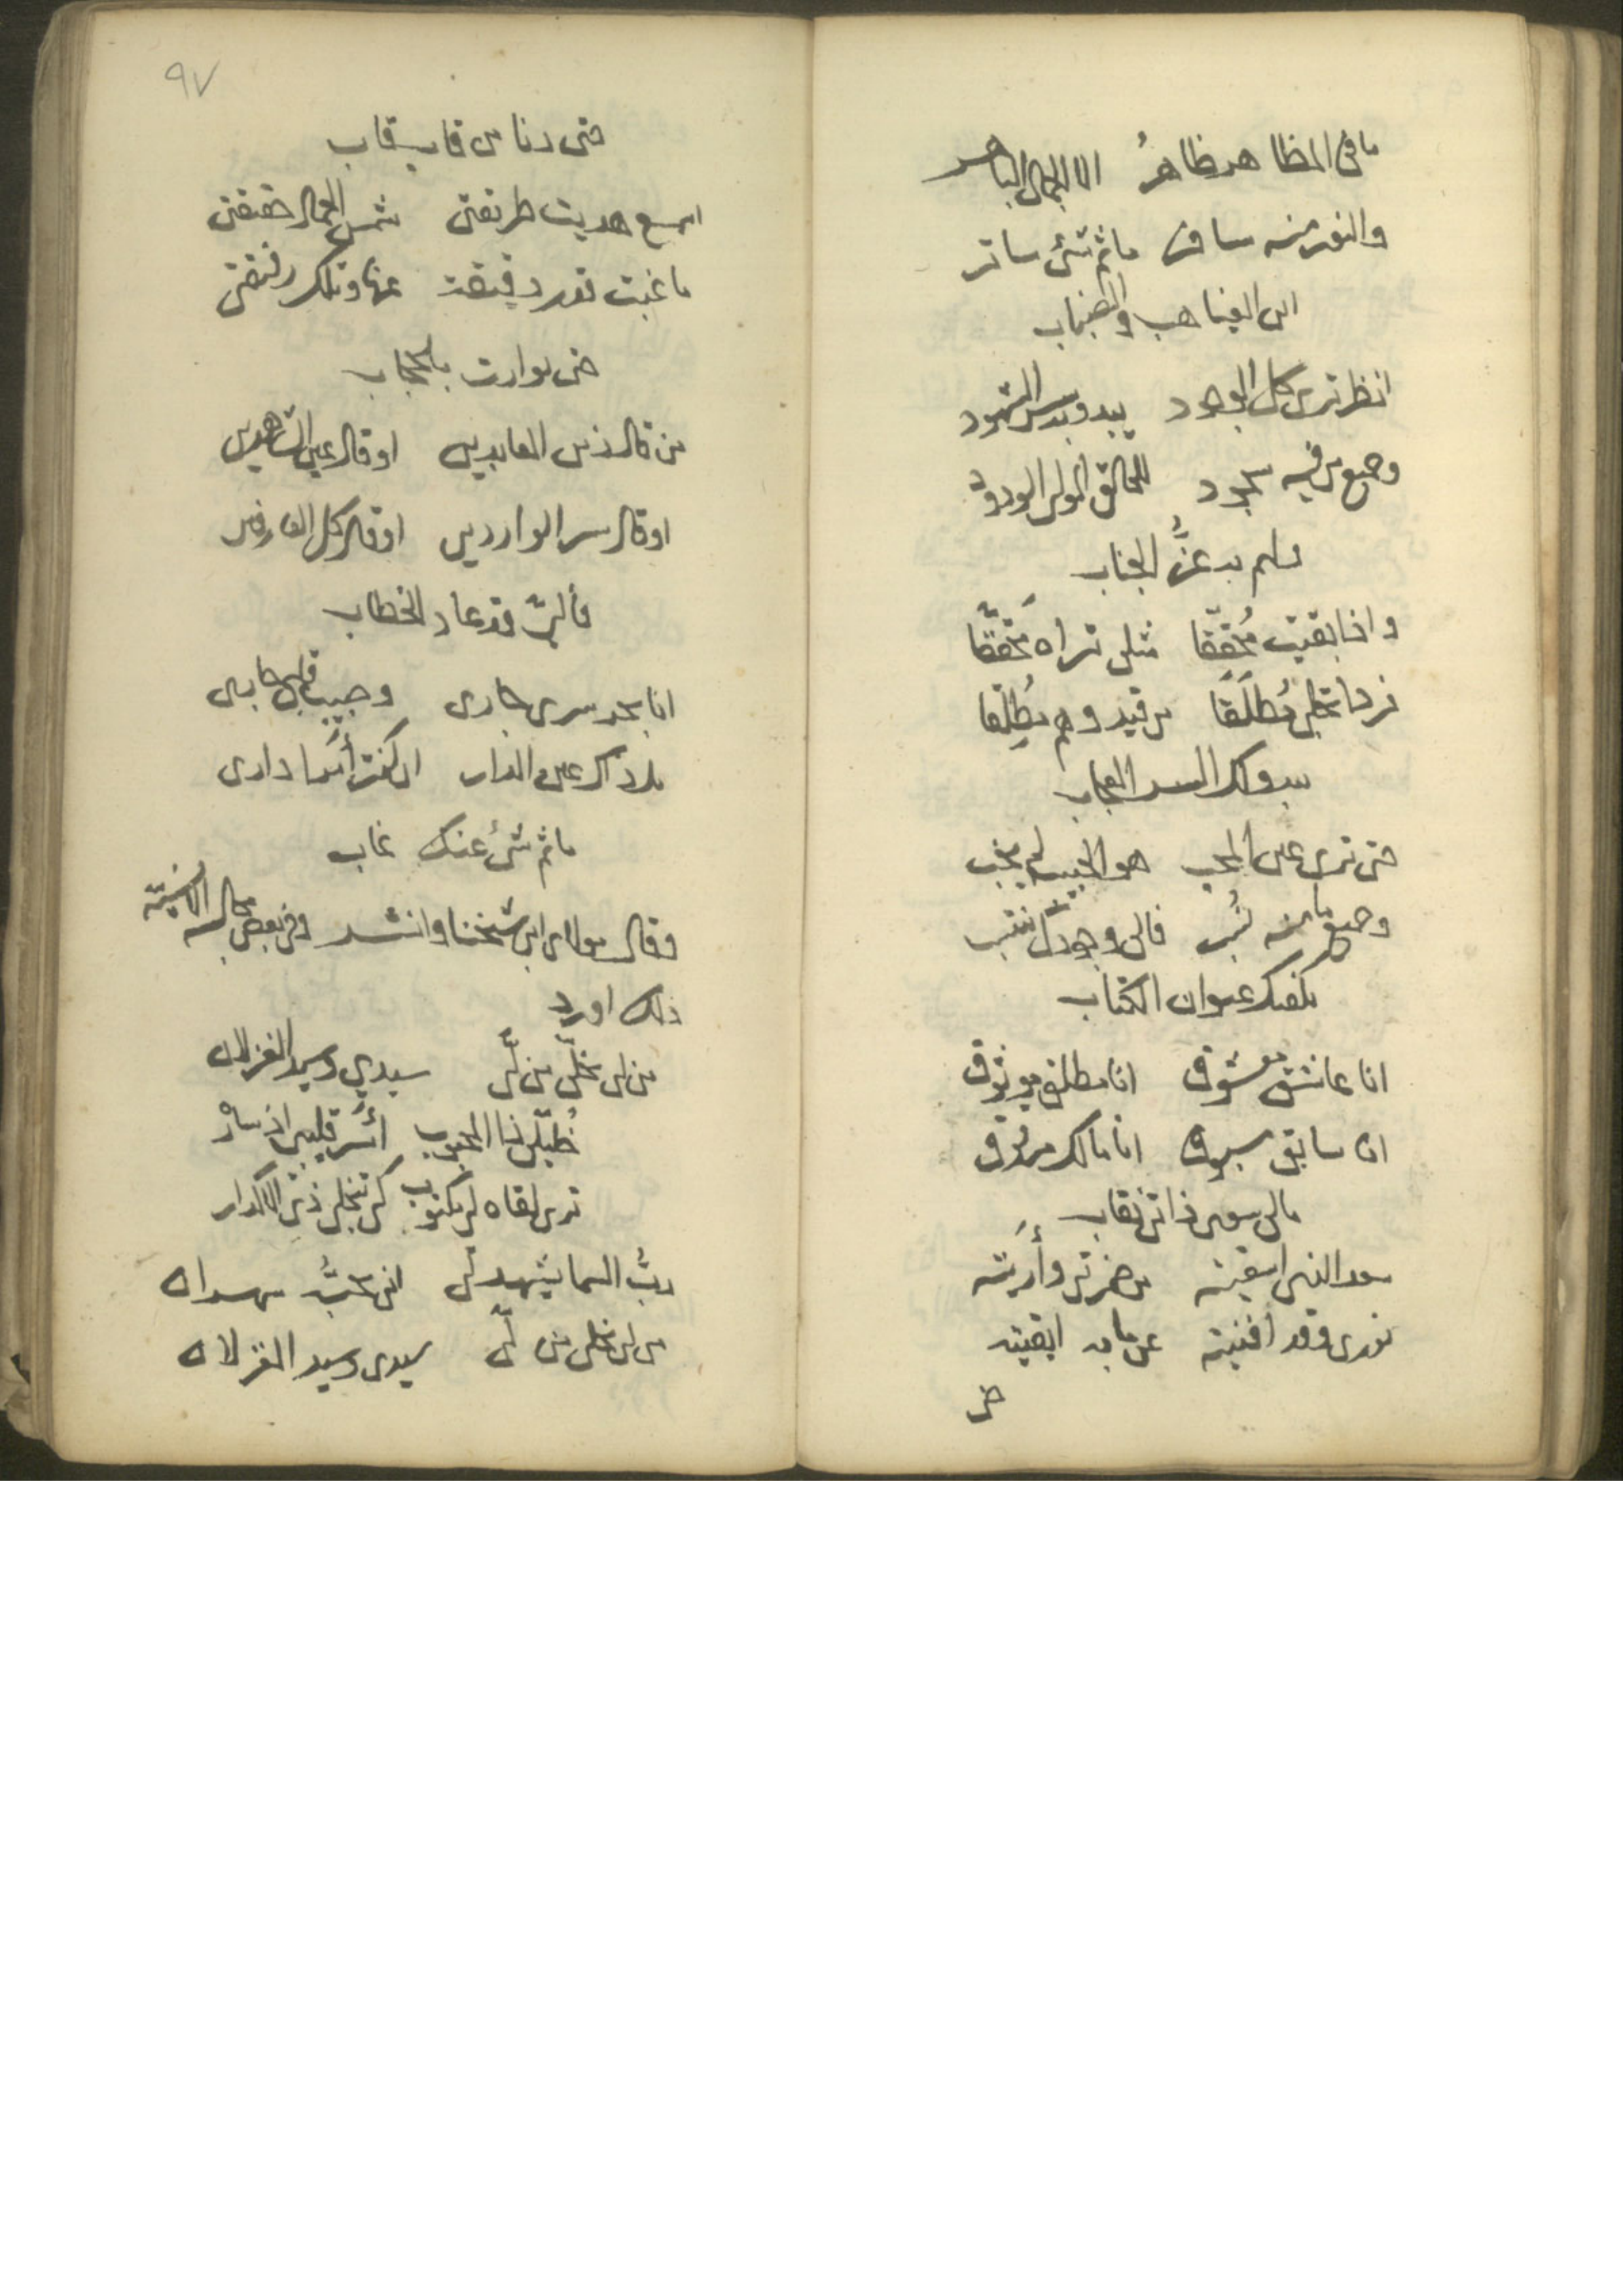 ما في المظاهر ظاهرُ الا الجمال الباهر
والنور منه سافر ماثم شئ ساتر
اين الغياهب والضباب
انظر ترى كل الوجود يبدو بسر الشهود
وجميع من فيه سجود للخالق المولى الودود
ولهم به عزُّ الجناب
واذا بقيت مُحَقِّقا مثلي تراه مُحَقَّقا
فردا تجلى مُطلَقًا من قيد وهم مُطلِقا
يبدو لك السر العجاب
حتى ترى عين المحب هو الحبيب لم يحب
وجميع ما منه نُسب فالى وجودك ينتسب
يكفيك عنوان الكتاب
انا عاشق معشوق انا مطلق موثوق
انا سابق مسبوق انا مالك مرزوق
مالي سوى ذاتي نقاب
سعد الذي اسقيته من خمرتي وأرَيته
نوري وقد افنيته عن ما به ابقيته
حتى
٩٧
حتى دنا من قاب قاب
اسمع حديث طريقتي شمس الجمال حقيقتي
ما غبت قدر دقيقة عنها وتلك رقيقتي
حتى توارت بالحجاب
من قال زين العابدين او قال عين الشاهدين
او قال سر الواردين او قال كل العارفين
فالىّ قد عاد الخطاب
انا بحر سري جاري وحبيب قلبي جاري
بل ذاك عين الدار ان كنت أنت دارى
ماثم شئ عنك غاب
وقال مولاي ابن شيخنا وانشد وفي بعض مجالسه الانسية
ذلك اورد
من لي بخلّي من لي سيدي وسيد الغزلان
ظبيٌ لنا المحبوب أسَر قليبي اذ سار
ترى لقاه لي مكتوب كي تنجلي ذي الاكدار
ربُّ السما يشهد لي اني محبٌّ سهران
من لي بخلي من لي سيدي وسيد الغزلان